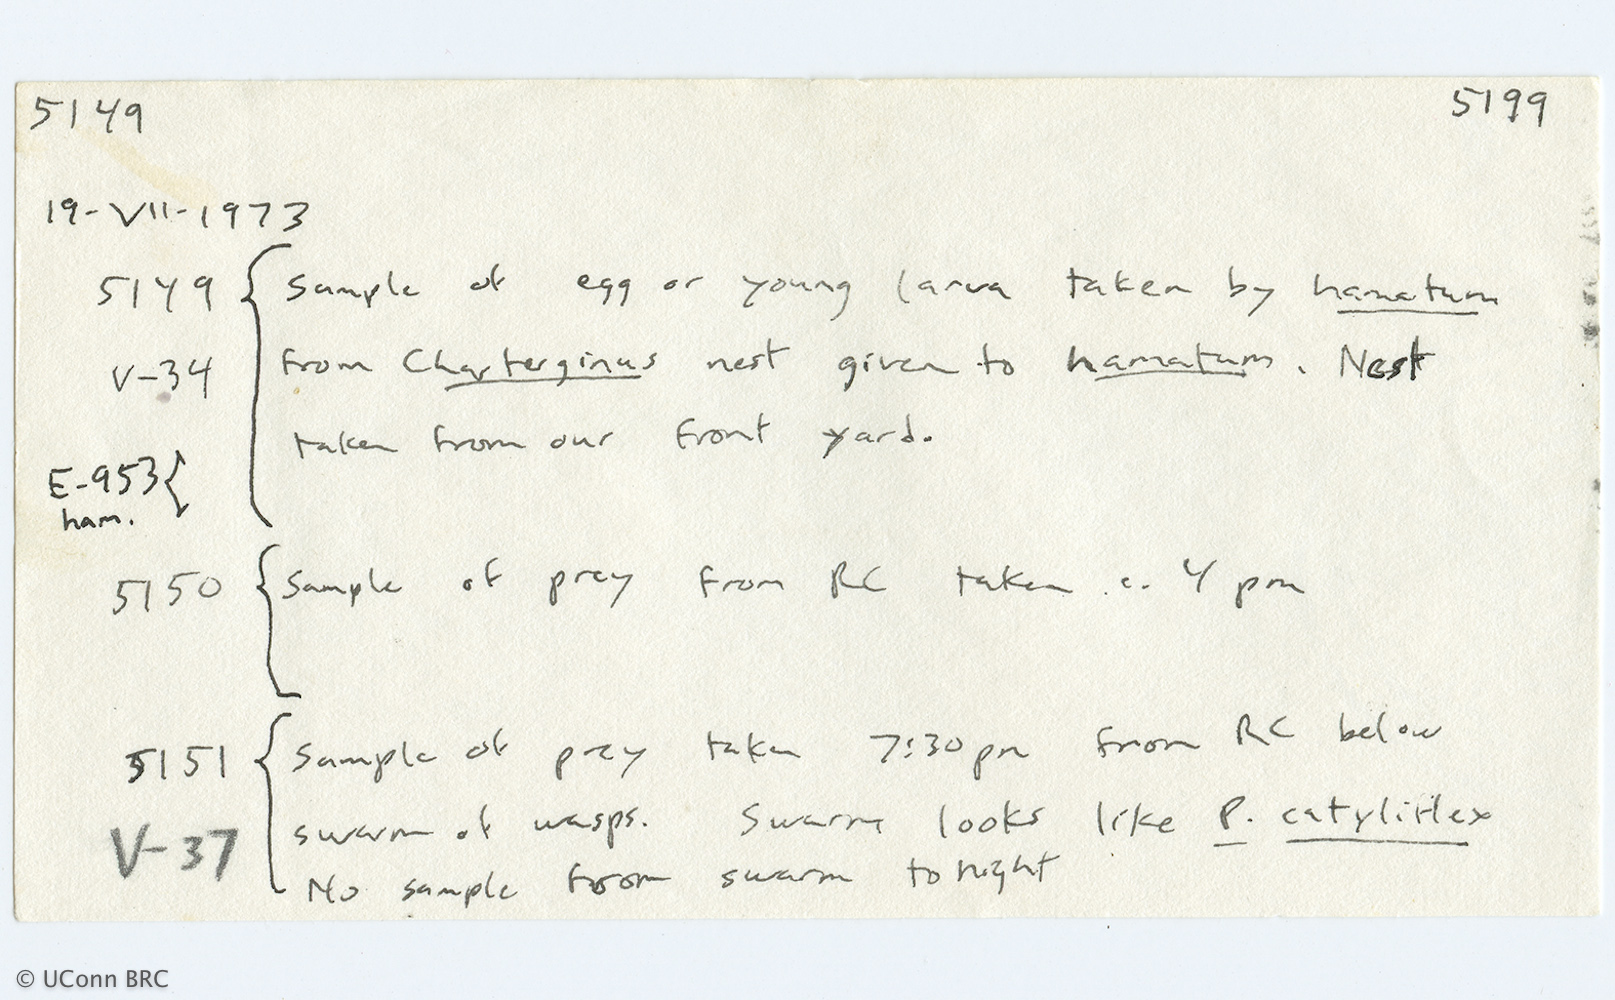 5149 5199
19-VII-1973
5149 { Sample of egg or young larva taken by hamatum
V-34 from Charterginus nest given to hamatum. Nest
taken from our front yard.
E-953 {
ham.
5150 { Sample of prey from RC taken c. 4 pm
5151 { Sample of prey taken 7:30 pm from RC below
V-37 swarm of wasps. Swarm looks like P.
No sample from swarm tonight
© UConn BRC